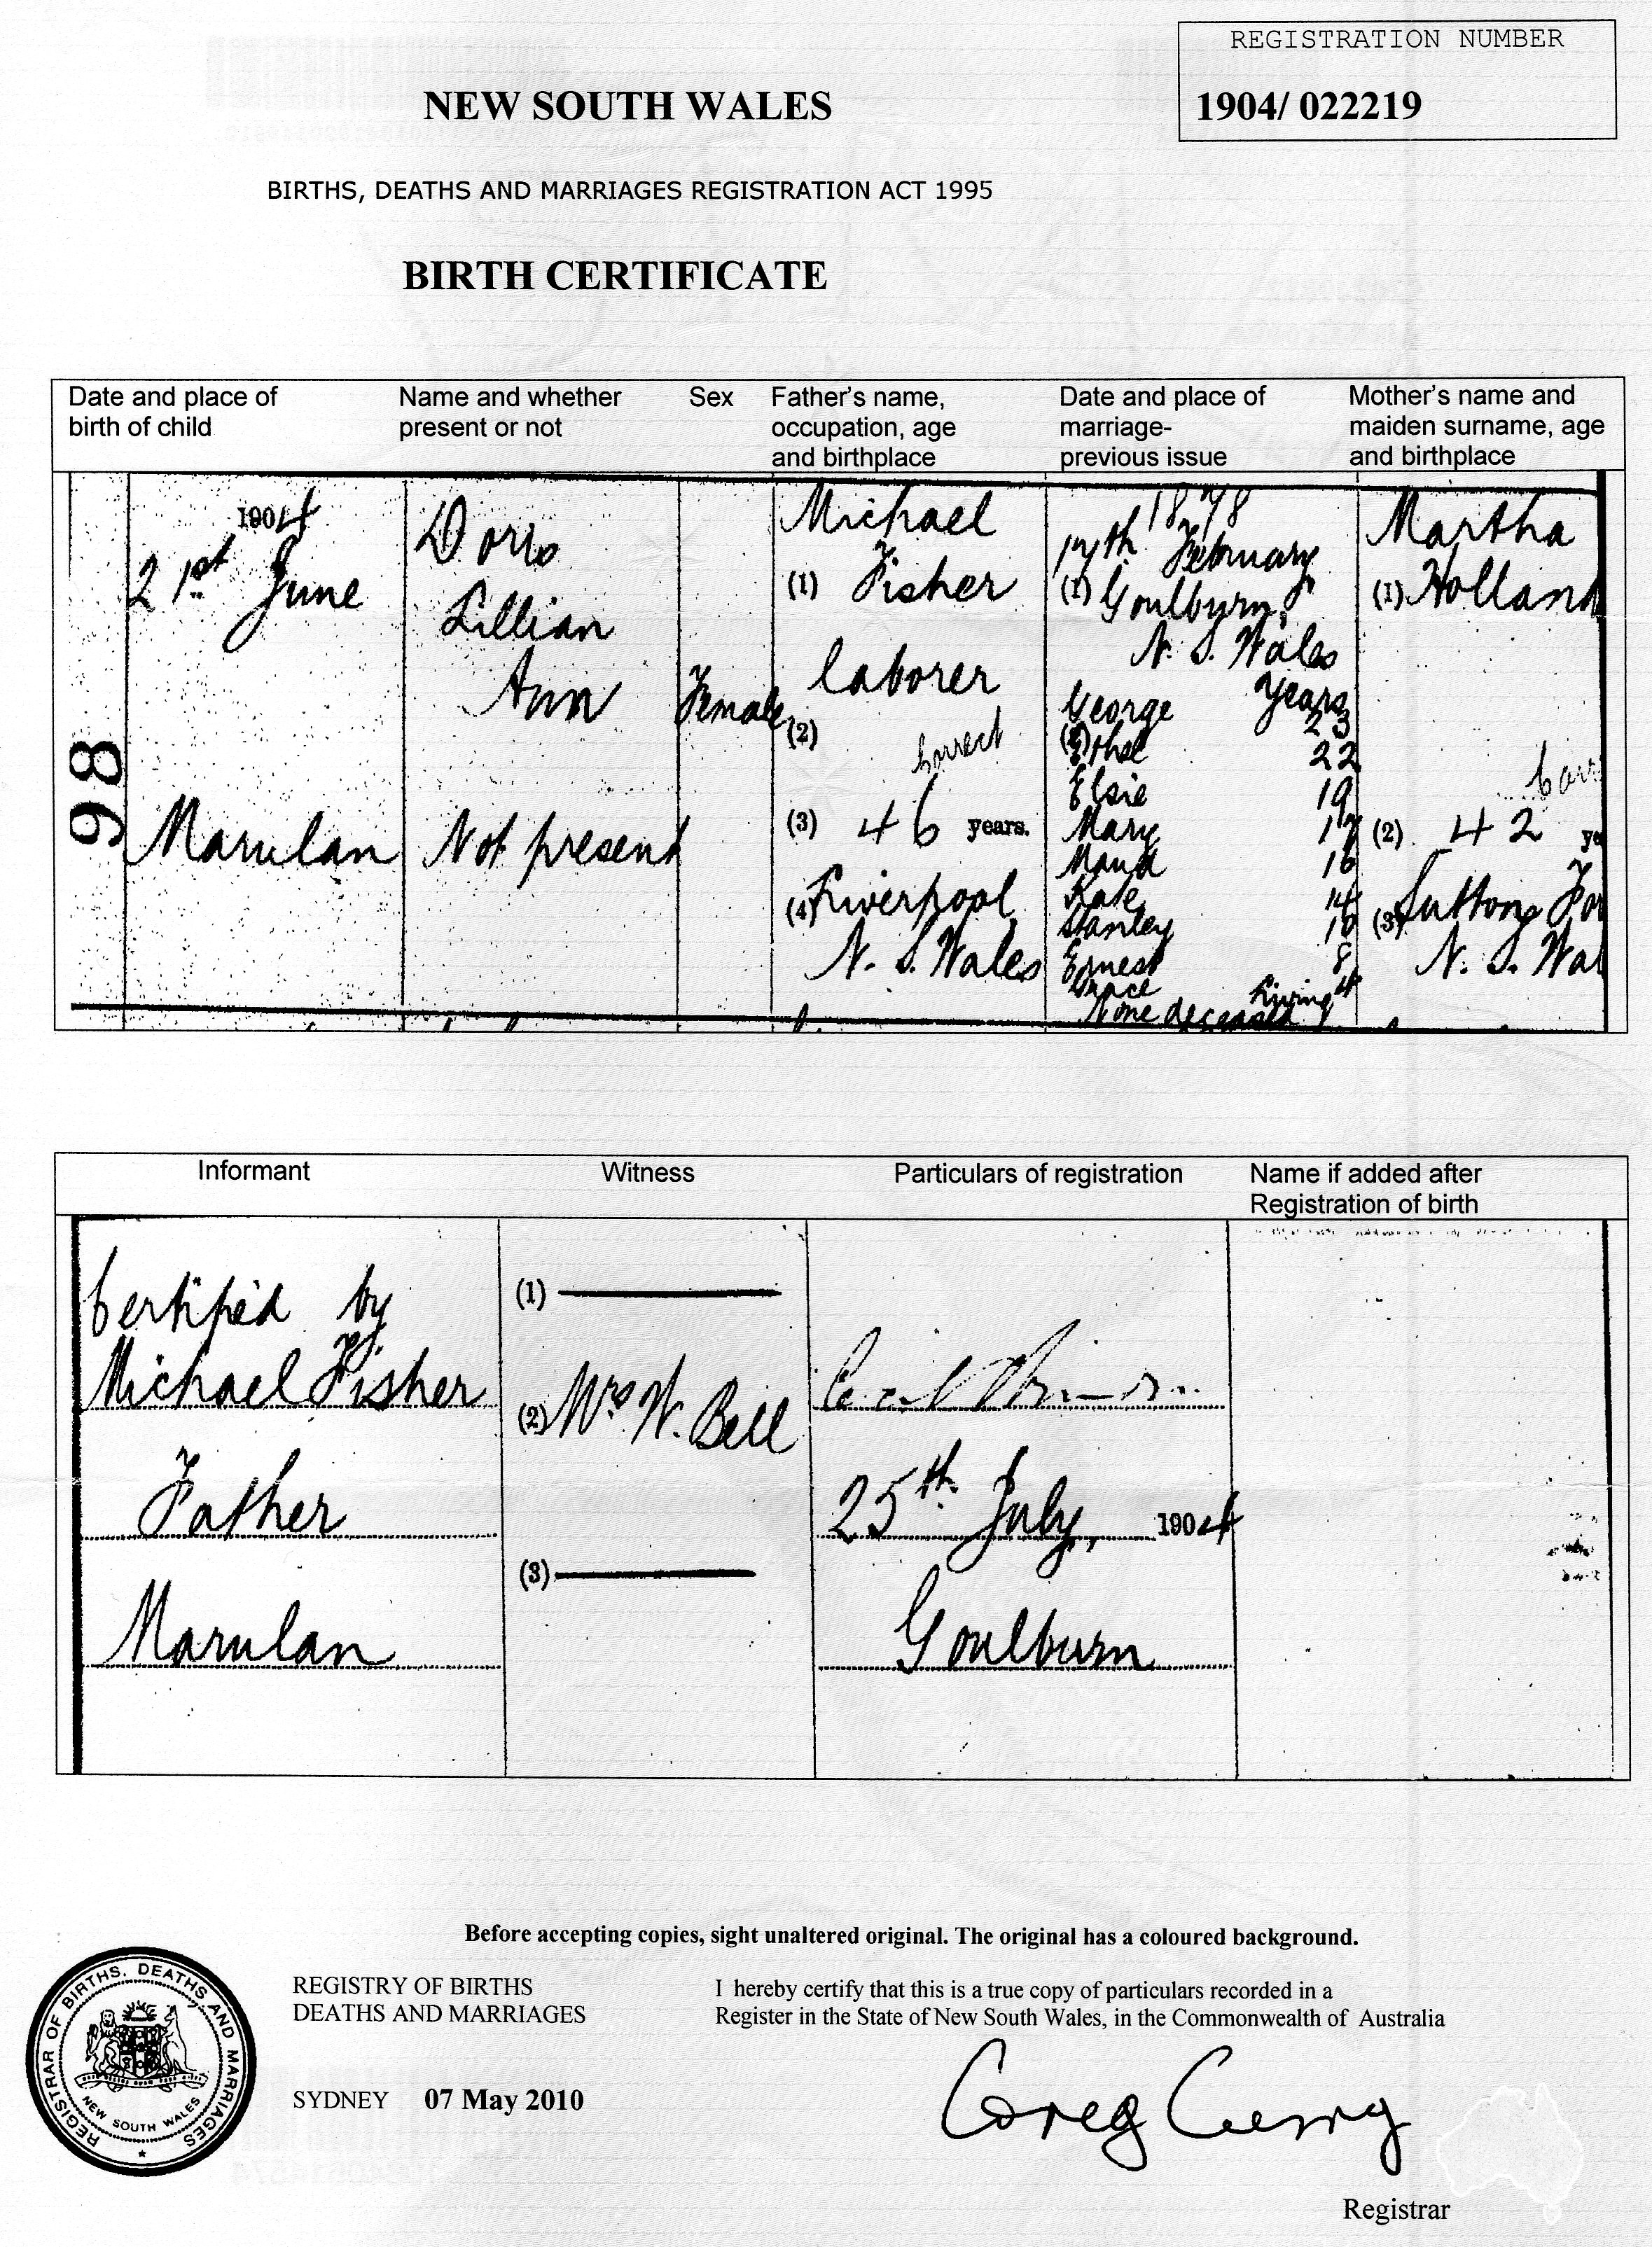 REGISTRATION NUMBER
1904/ 022219
NEW SOUTH WALES
BIRTHS, DEATHS AND MARRIAGES REGISTRATION ACT 1995
BIRTH CERTIFICATE
Date and place of
birth of child
Name and whether
present or not
Sex
Father's name,
occupation, age
and birthplace
Date and place of
marriage-
previous issue
Mother's name and
maiden surname, age
and birthplace
98
1904
21st June
Marulan
Doris
Lillian
Ann
Not present
Female
Michael
(1) Fisher
laborer
(2)
Correct
(3) 46 years.
(4) Liverpool
N. S. Wales
1878
17th February
(1) Goulburn,
N. S. Wales
George Years 23
(2) Ethel 22
Elsie 19
Mary 17
Maud 16
Kate 14
Stanley 10
Ernest 8
Grace 4
Living
None deceased
Martha
(1) Holland
(2) 42 ye
(3) Sutton For
N. S. Wal
Informant
Witness
Particulars of registration
Name if added after
Registration of birth
Certified by
Michael Fisher
Father
Marulan
(1)
(2) Mrs W. Bell
(3)
25th July, 1904
Goulburn
Before accepting copies, sight unaltered original. The original has a coloured background.
REGISTRAR OF BIRTHS, DEATHS AND MARRIAGES
NEW SOUTH WALES
REGISTRY OF BIRTHS
DEATHS AND MARRIAGES
SYDNEY 07 May 2010
I hereby certify that this is a true copy of particulars recorded in a
Register in the State of New South Wales, in the Commonwealth of Australia
Greg Curry
Registrar